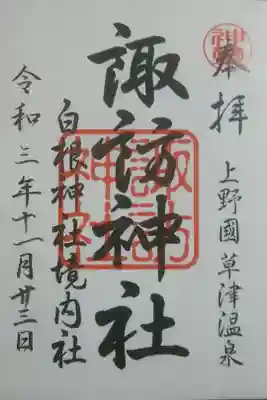 奉拝
上野國草津温泉
諏訪神社
諏訪神社
白根神社境内社
令和三年十一月廿三日